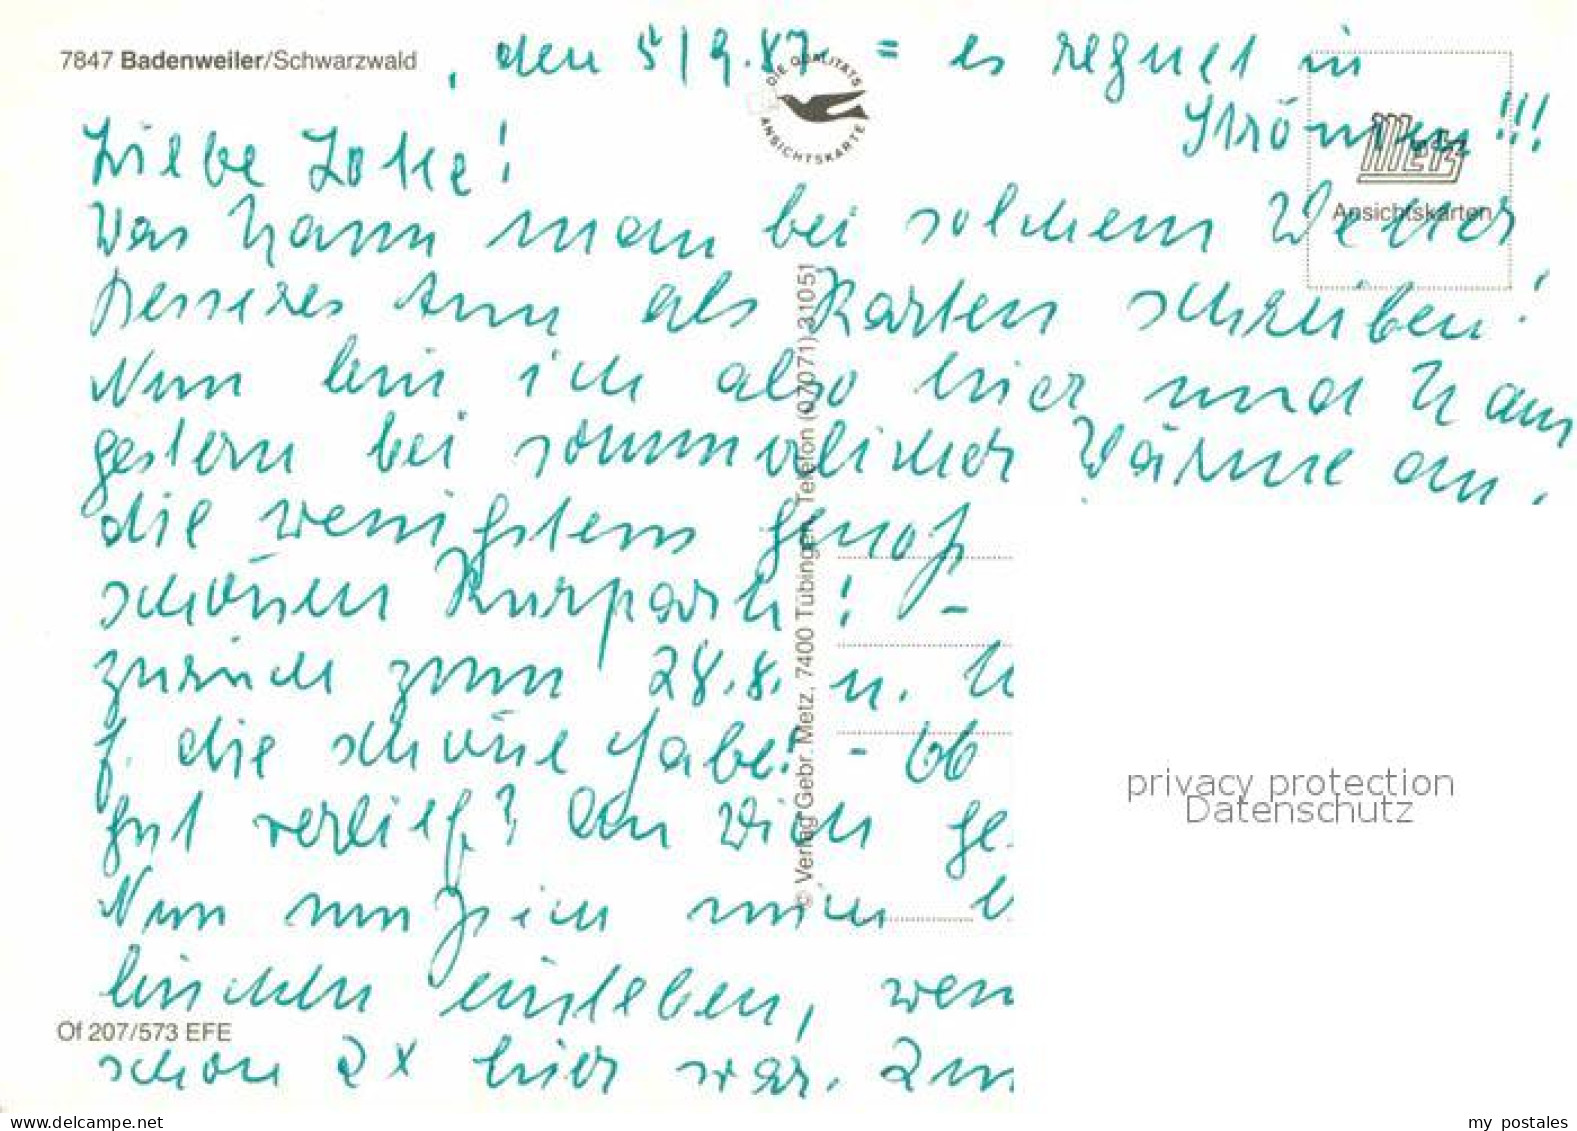 7847 Badenweiler/Schwarzwald, den 5/9.87 = es regnet in
Strömen!!!
DIE QUALITÄTS ANSICHTSKARTE
Metz
Ansichtskarten
Liebe Lotte!
Was kann man bei solchem Wetter
besseres tun als Karten schreiben!
Nun bin ich also hier und kam
gestern bei sommerlicher Wärme an,
die wenigstens genoß
schönen Kurpark! -
zurück zum 28.8. u.
f. die schöne Gabe! - Ob
gut verlief? An Dich ge
Nun muß ich mich
bischen einleben, wen
schon 2x hier war. Zum
© Verlag Gebr. Metz, 7400 Tübingen, Telefon (07071) 31051
Of 207/573 EFE
privacy protection
Datenschutz
my postales
www.delcampe.net